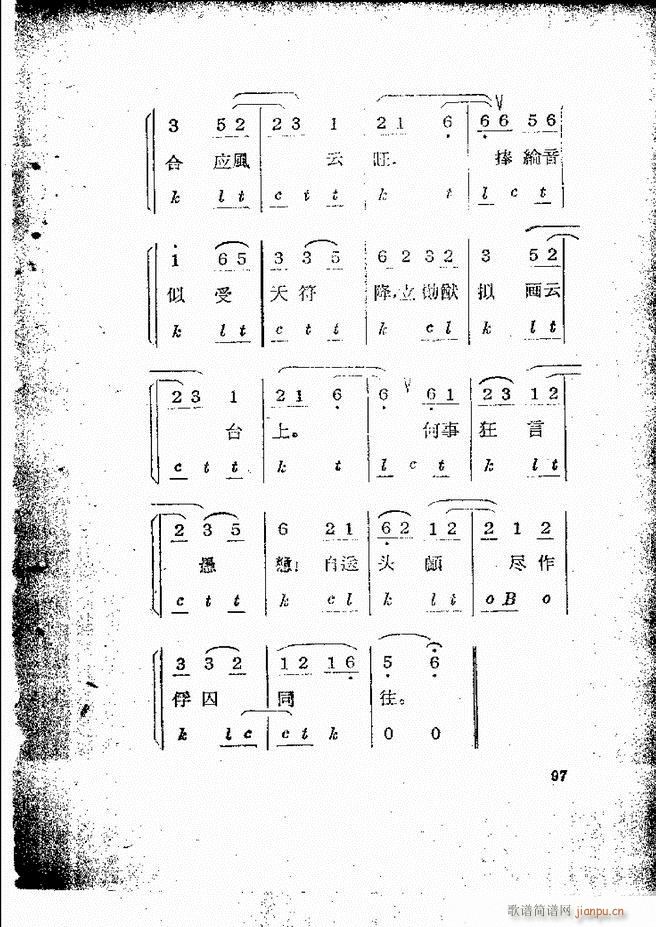 3 5 2 2 3 1 2 1 6 6 6 5 6
合 应風 云 旺. 捧綸音
k l t c t t k t l c t
1 6 5 3 3 5 6 2 3 2 3 5 2
似 受 天 符 降,立勋猷 拟 画云
k l t c t t k c l k l t
2 3 1 2 1 6 6 6 1 2 3 1 2
台 上。 何事 狂 言
c t t k t l c t k l t
2 3 5 6 2 1 6 2 1 2 2 1 2
愚 戆! 自送 头 顱 尽 作
c t t k c l k l t o B o
3 3 2 1 2 1 6 5 6
俘 囚 同 往。
k l c c t k 0 0
97
歌谱简谱网 jianpu.cn